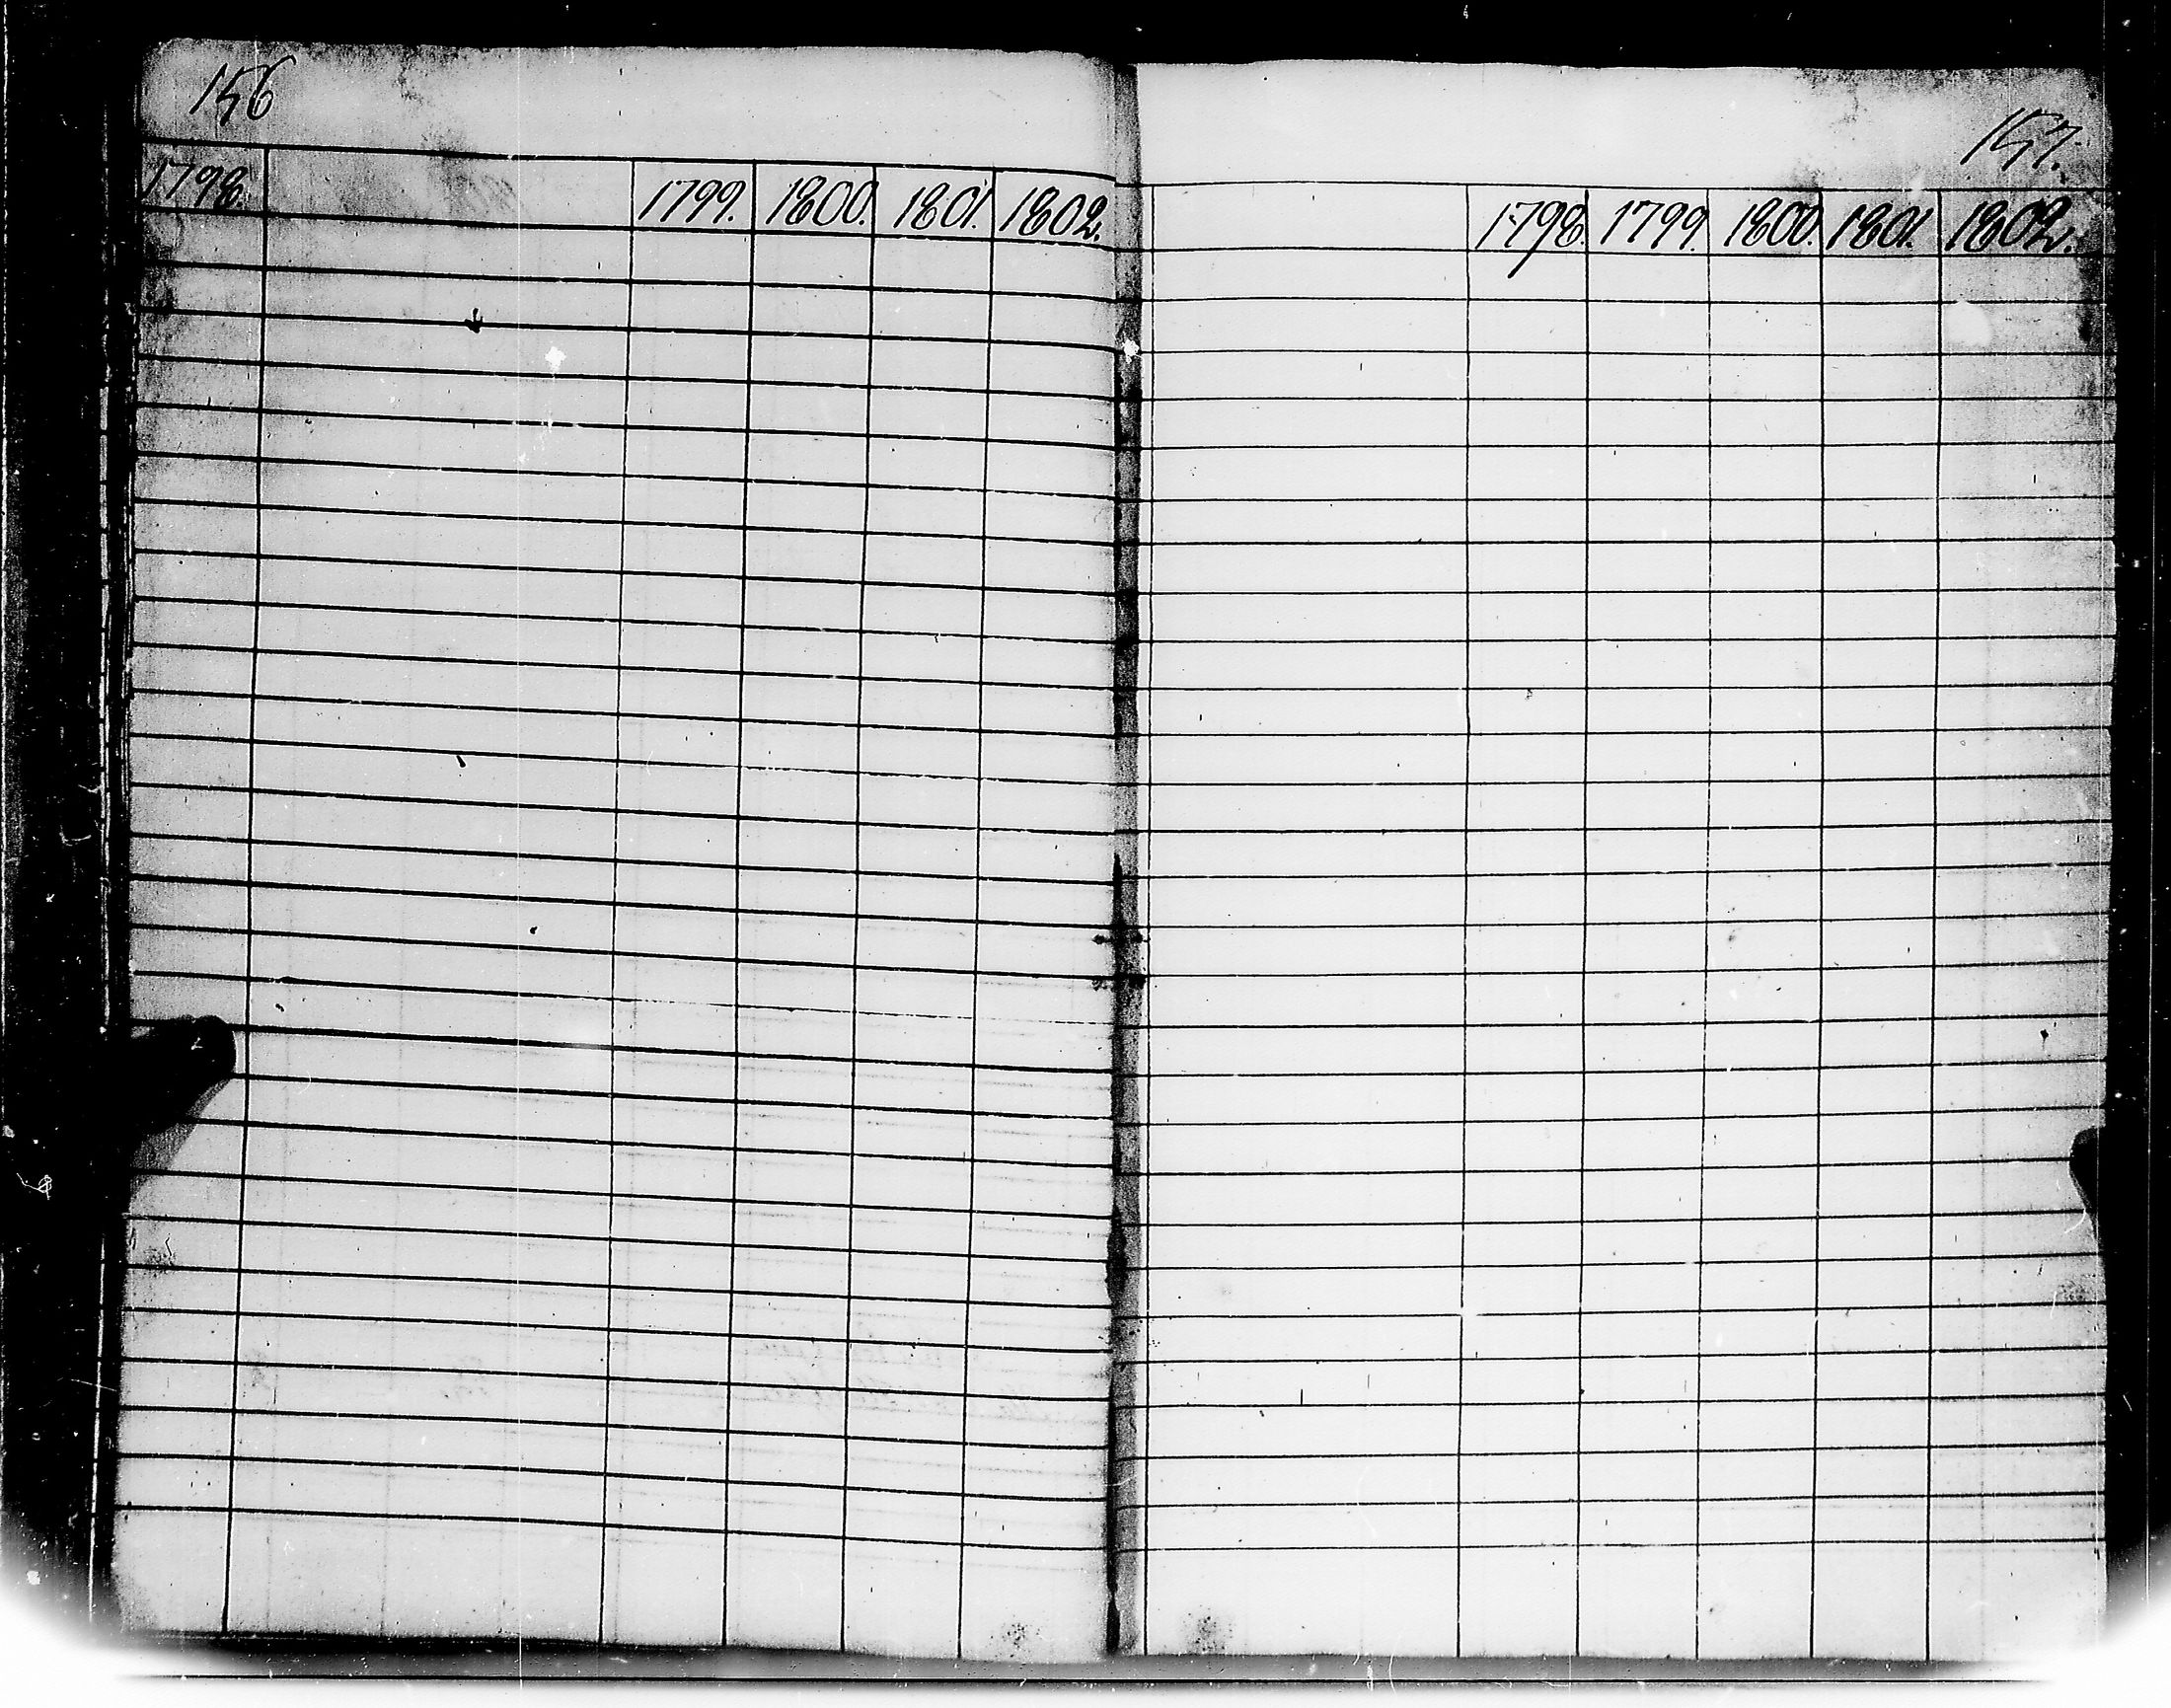 156
1798. 1799. 1800. 1801. 1802.
157.
1798. 1799. 1800. 1801. 1802.